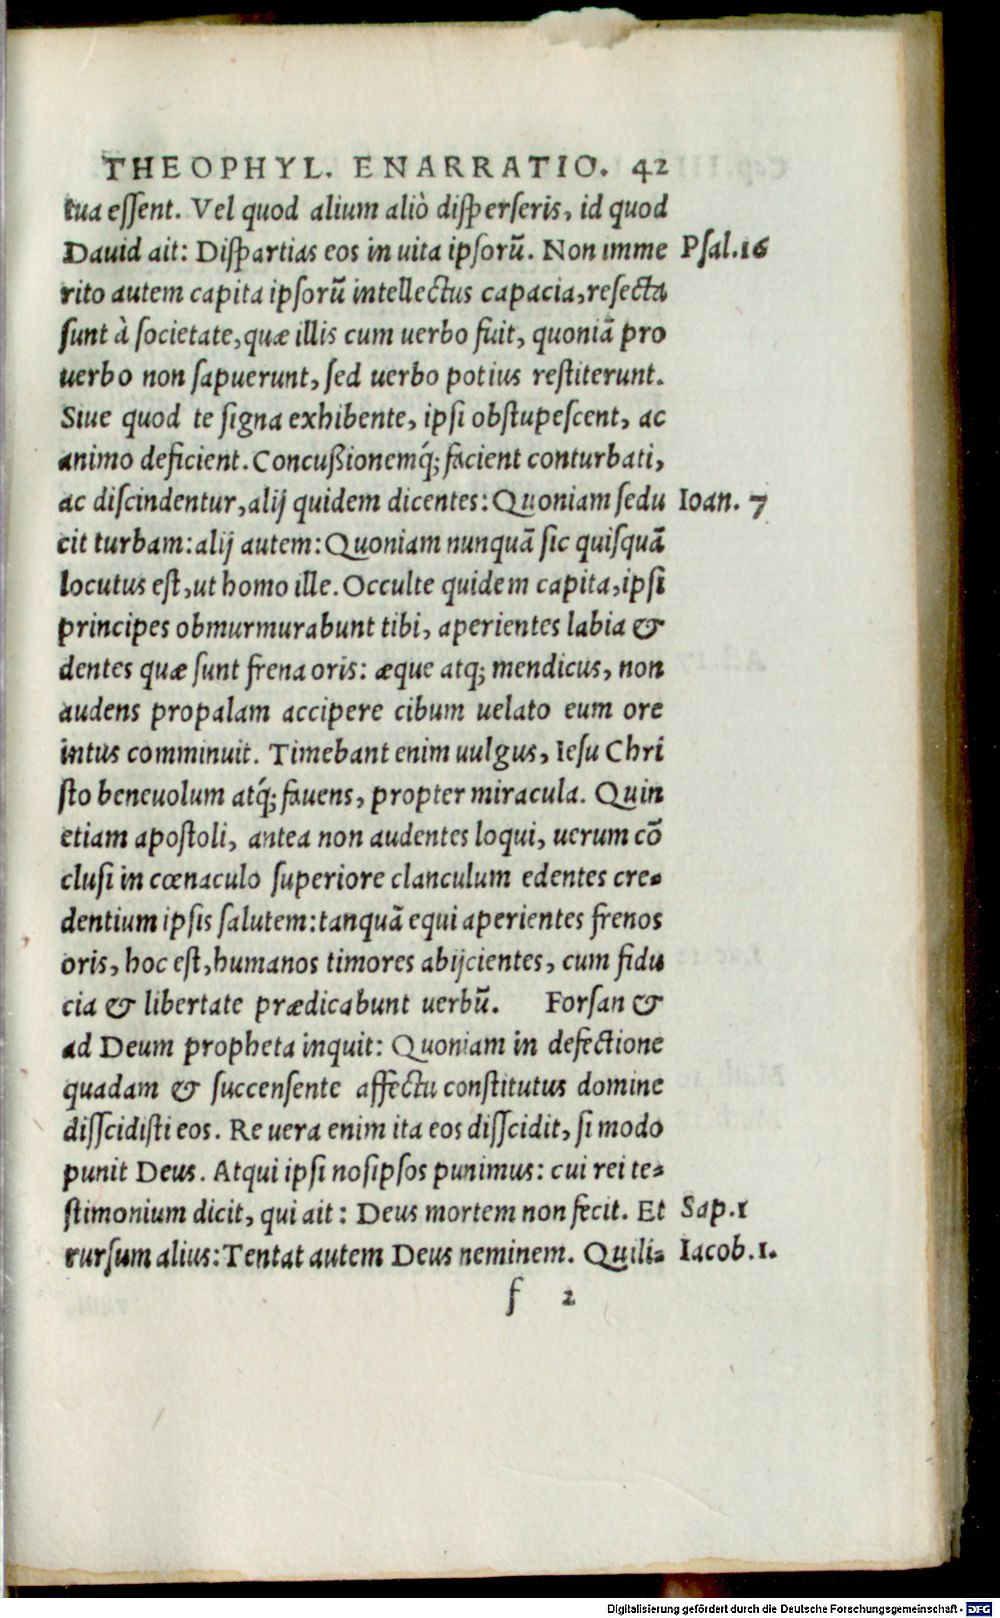 THEOPHYL. ENARRATIO. 42
tua essent. Vel quod alium aliò disperseris, id quod
Dauid ait: Dispartias eos in uita ipsorũ. Non imme Psal.16
rito autem capita ipsorũ intellectus capacia, resecta
sunt à societate, quæ illis cum uerbo fuit, quoniã pro
uerbo non sapuerunt, sed uerbo potius restiterunt.
Siue quod te signa exhibente, ipsi obstupescent, ac
animo deficient. Concußionemq́; facient conturbati,
ac discindentur, alij quidem dicentes: Quoniam sedu Ioan. 7
cit turbam: alij autem: Quoniam nunquã sic quisquã
locutus est, ut homo ille. Occulte quidem capita, ipsi
principes obmurmurabunt tibi, aperientes labia &
dentes quæ sunt frena oris: æque atq; mendicus, non
audens propalam accipere cibum uelato eum ore
intus comminuit. Timebant enim uulgus, Iesu Chri
sto beneuolum atq́; fauens, propter miracula. Quin
etiam apostoli, antea non audentes loqui, uerum cõ
clusi in cœnaculo superiore clanculum edentes cre-
dentium ipsis salutem: tanquã equi aperientes frenos
oris, hoc est, humanos timores abijcientes, cum fidu
cia & libertate prædicabunt uerbũ. Forsan &
ad Deum propheta inquit: Quoniam in defectione
quadam & succensente affectu constitutus domine
disscidisti eos. Re uera enim ita eos disscidit, si modo
punit Deus. Atqui ipsi nosipsos punimus: cui rei te-
stimonium dicit, qui ait: Deus mortem non fecit. Et Sap.1
rursum alius: Tentat autem Deus neminem. Quili- Iacob.1.
f 2
Digitalisierung gefördert durch die Deutsche Forschungsgemeinschaft - DFG